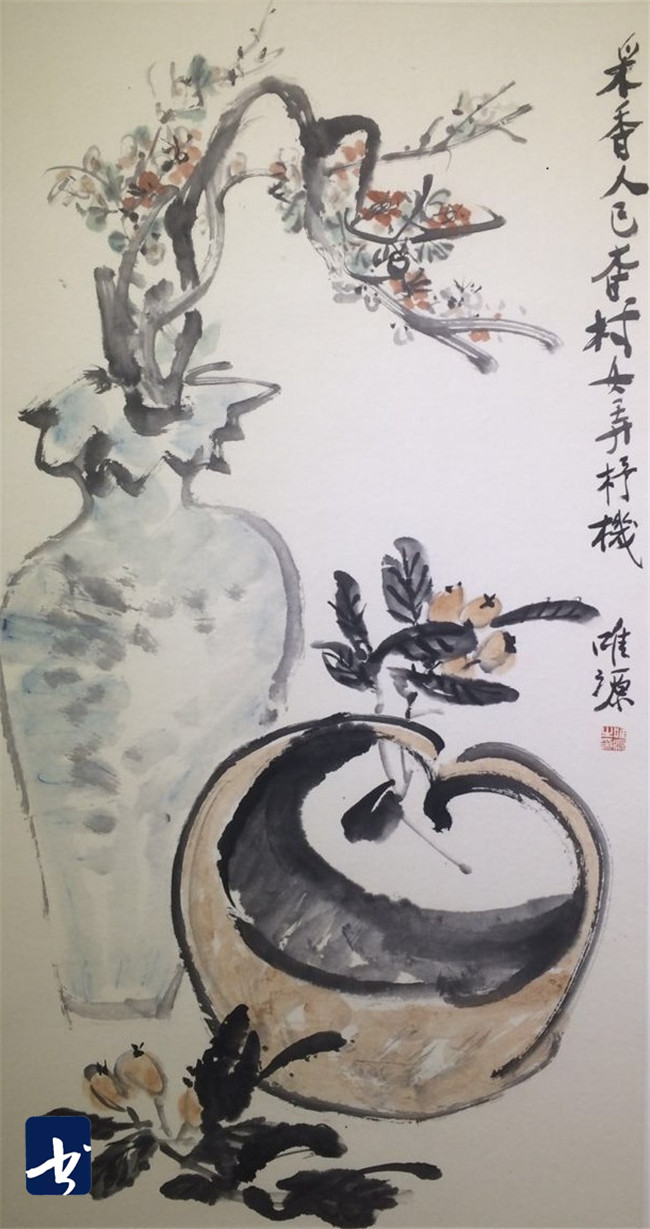 采香人已杳村女弄杼機
唯源
书